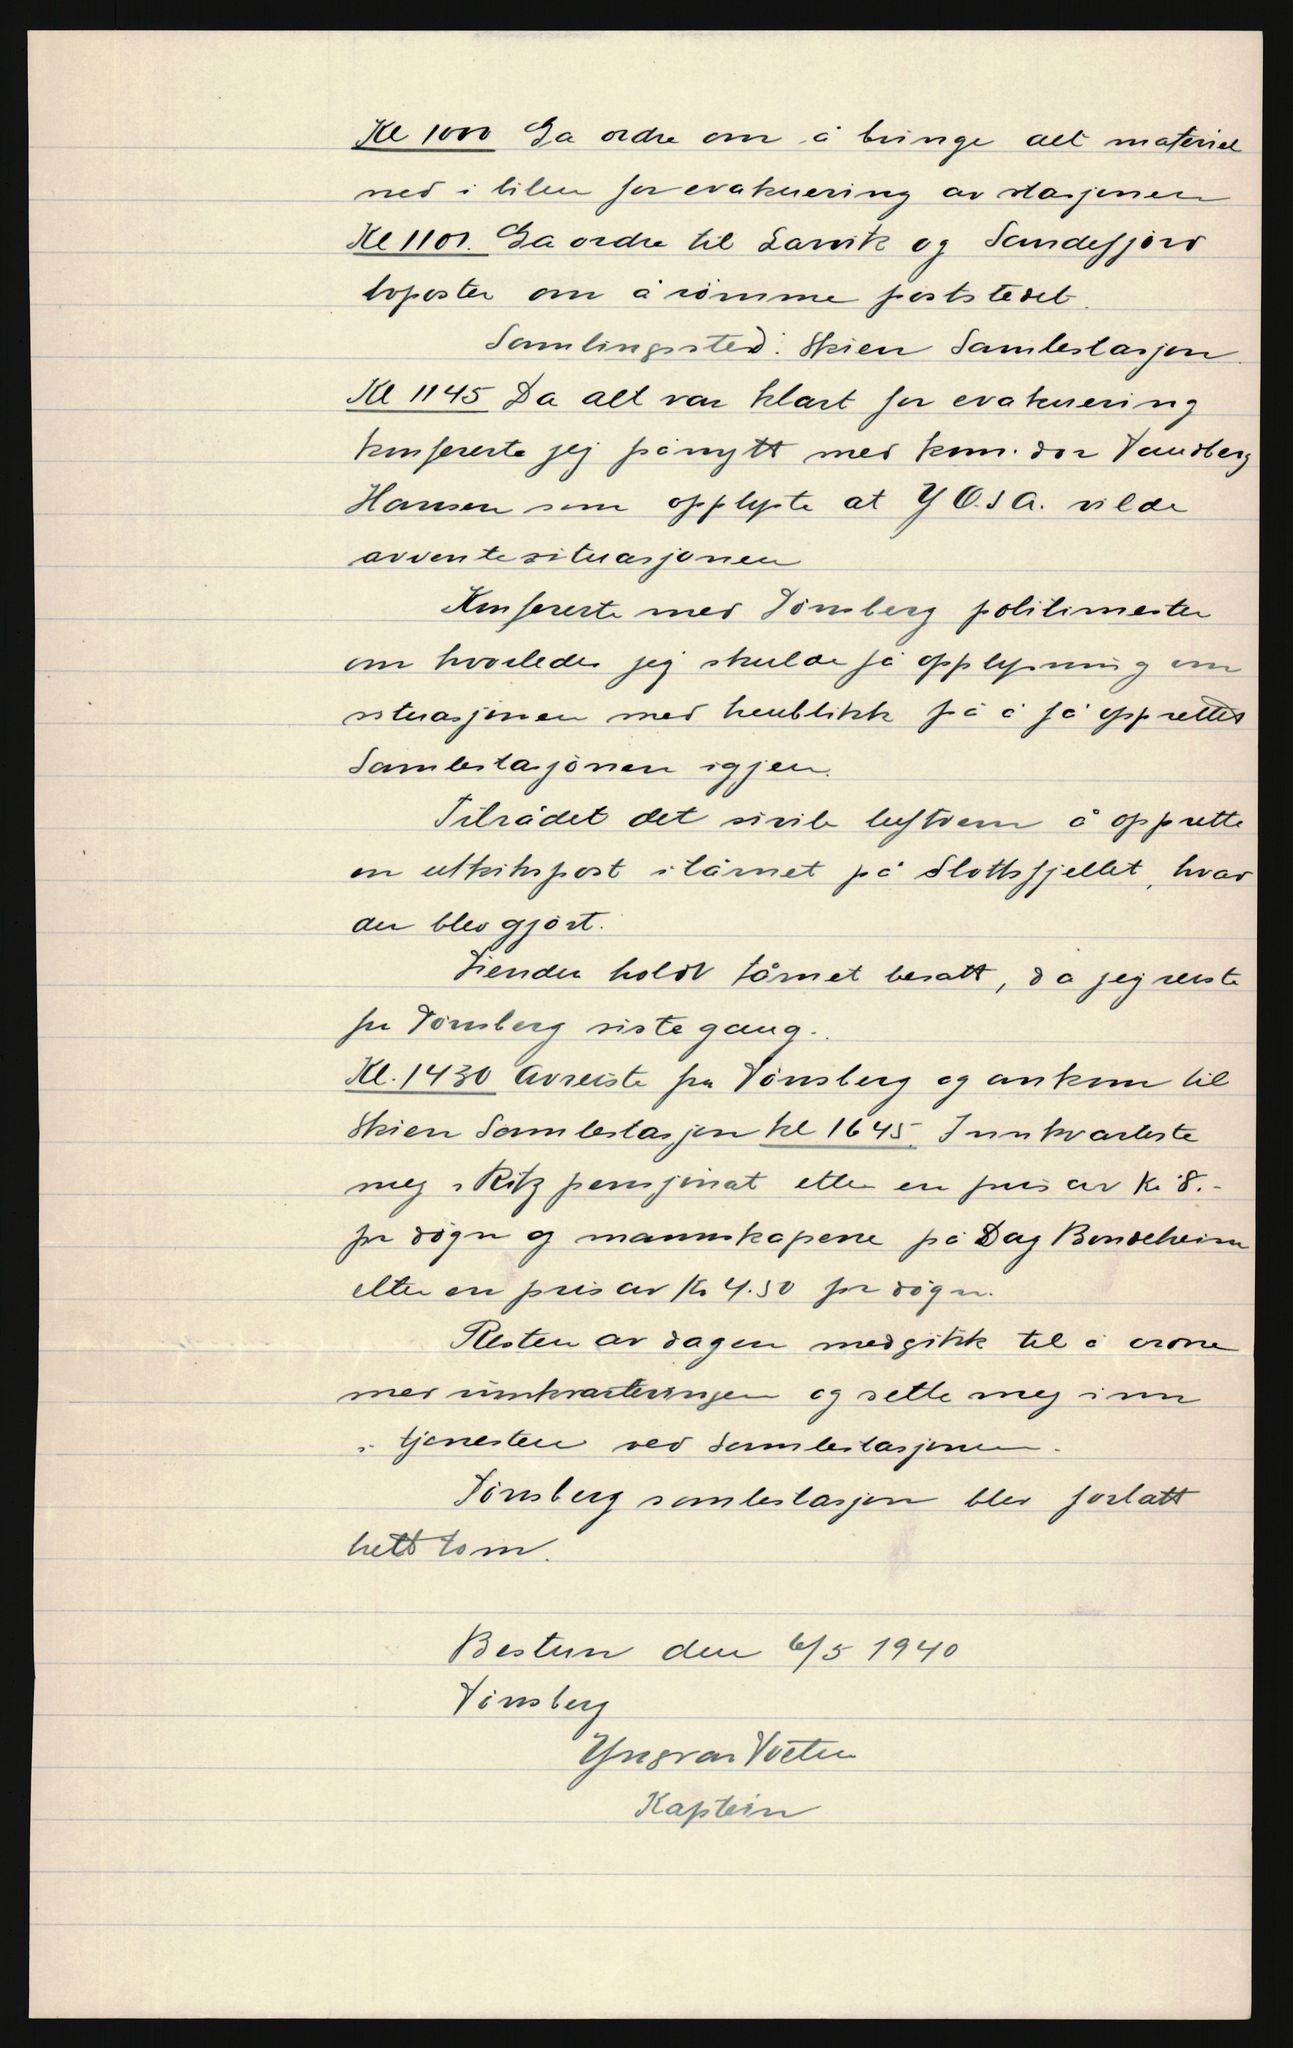 Kl 1000 Ga ordre om å bringe alt materiel
ned i bilen for evakuering av stasjonen
Kl 1101. Ga ordre til Larvik og Sandefjord
lvposter om å rømme poststedet.
Samlingssted: Skien Sambestasjon.
Kl 1145 Da alt var klart for evakuering
konfererte jeg pånytt med kom.dør Tandberg
Hansen som opplyste at Y Ø.S A. vilde
avvente situasjonen
Konfererte med Tønsberg politimester
om hvorledes jeg skulde få opplysning om
situasjonen med henblikk på å få opprettet
Sambestasjonen igjen.
Tilrådet det sivile luftvern å opprette
en utkikspost i tårnet på Slottsfjellet, hvad
der blev gjort.
holdt tårnet besatt, da jeg reiste
fra Tønsberg siste gang.
Kl. 1430 Avreiste fra Tønsberg og ankom til
Skien Sambestasjon kl 1645. Innkvarterte
meg i Ritz pensjonat etter en pris av Kr 8.-
pr døgn og mannskapene på Dag Bondeheim
etter en pris av Kr 4.50 pr døgn.
Resten av dagen medgikk til å ordne
med innkvarteringen og sette meg inn
i tjenesten ved Sambestasjonen.
Tønsberg sambestasjon blev forlatt
helt tom.
Bestun den 6/5 1940
Tønsberg
Yngvar
Kaptein